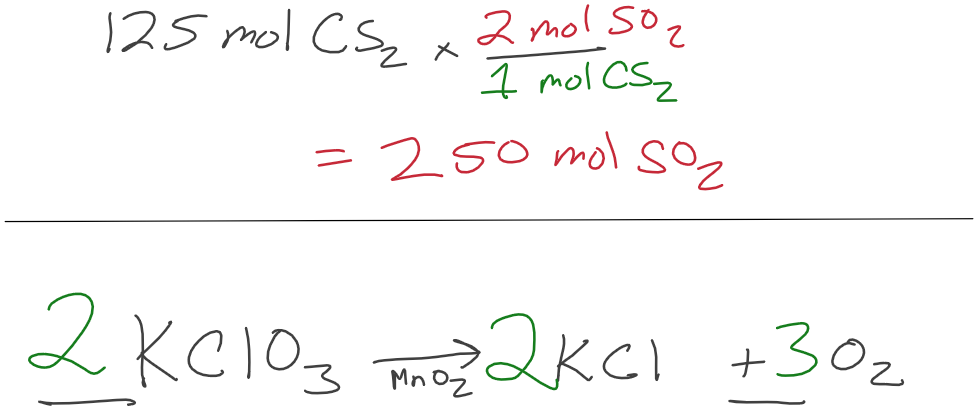 125 mol CS₂ × 2 mol SO₂ / 1 mol CS₂
= 250 mol SO₂
2 KClO₃ → MnO₂ 2 KCl + 3 O₂